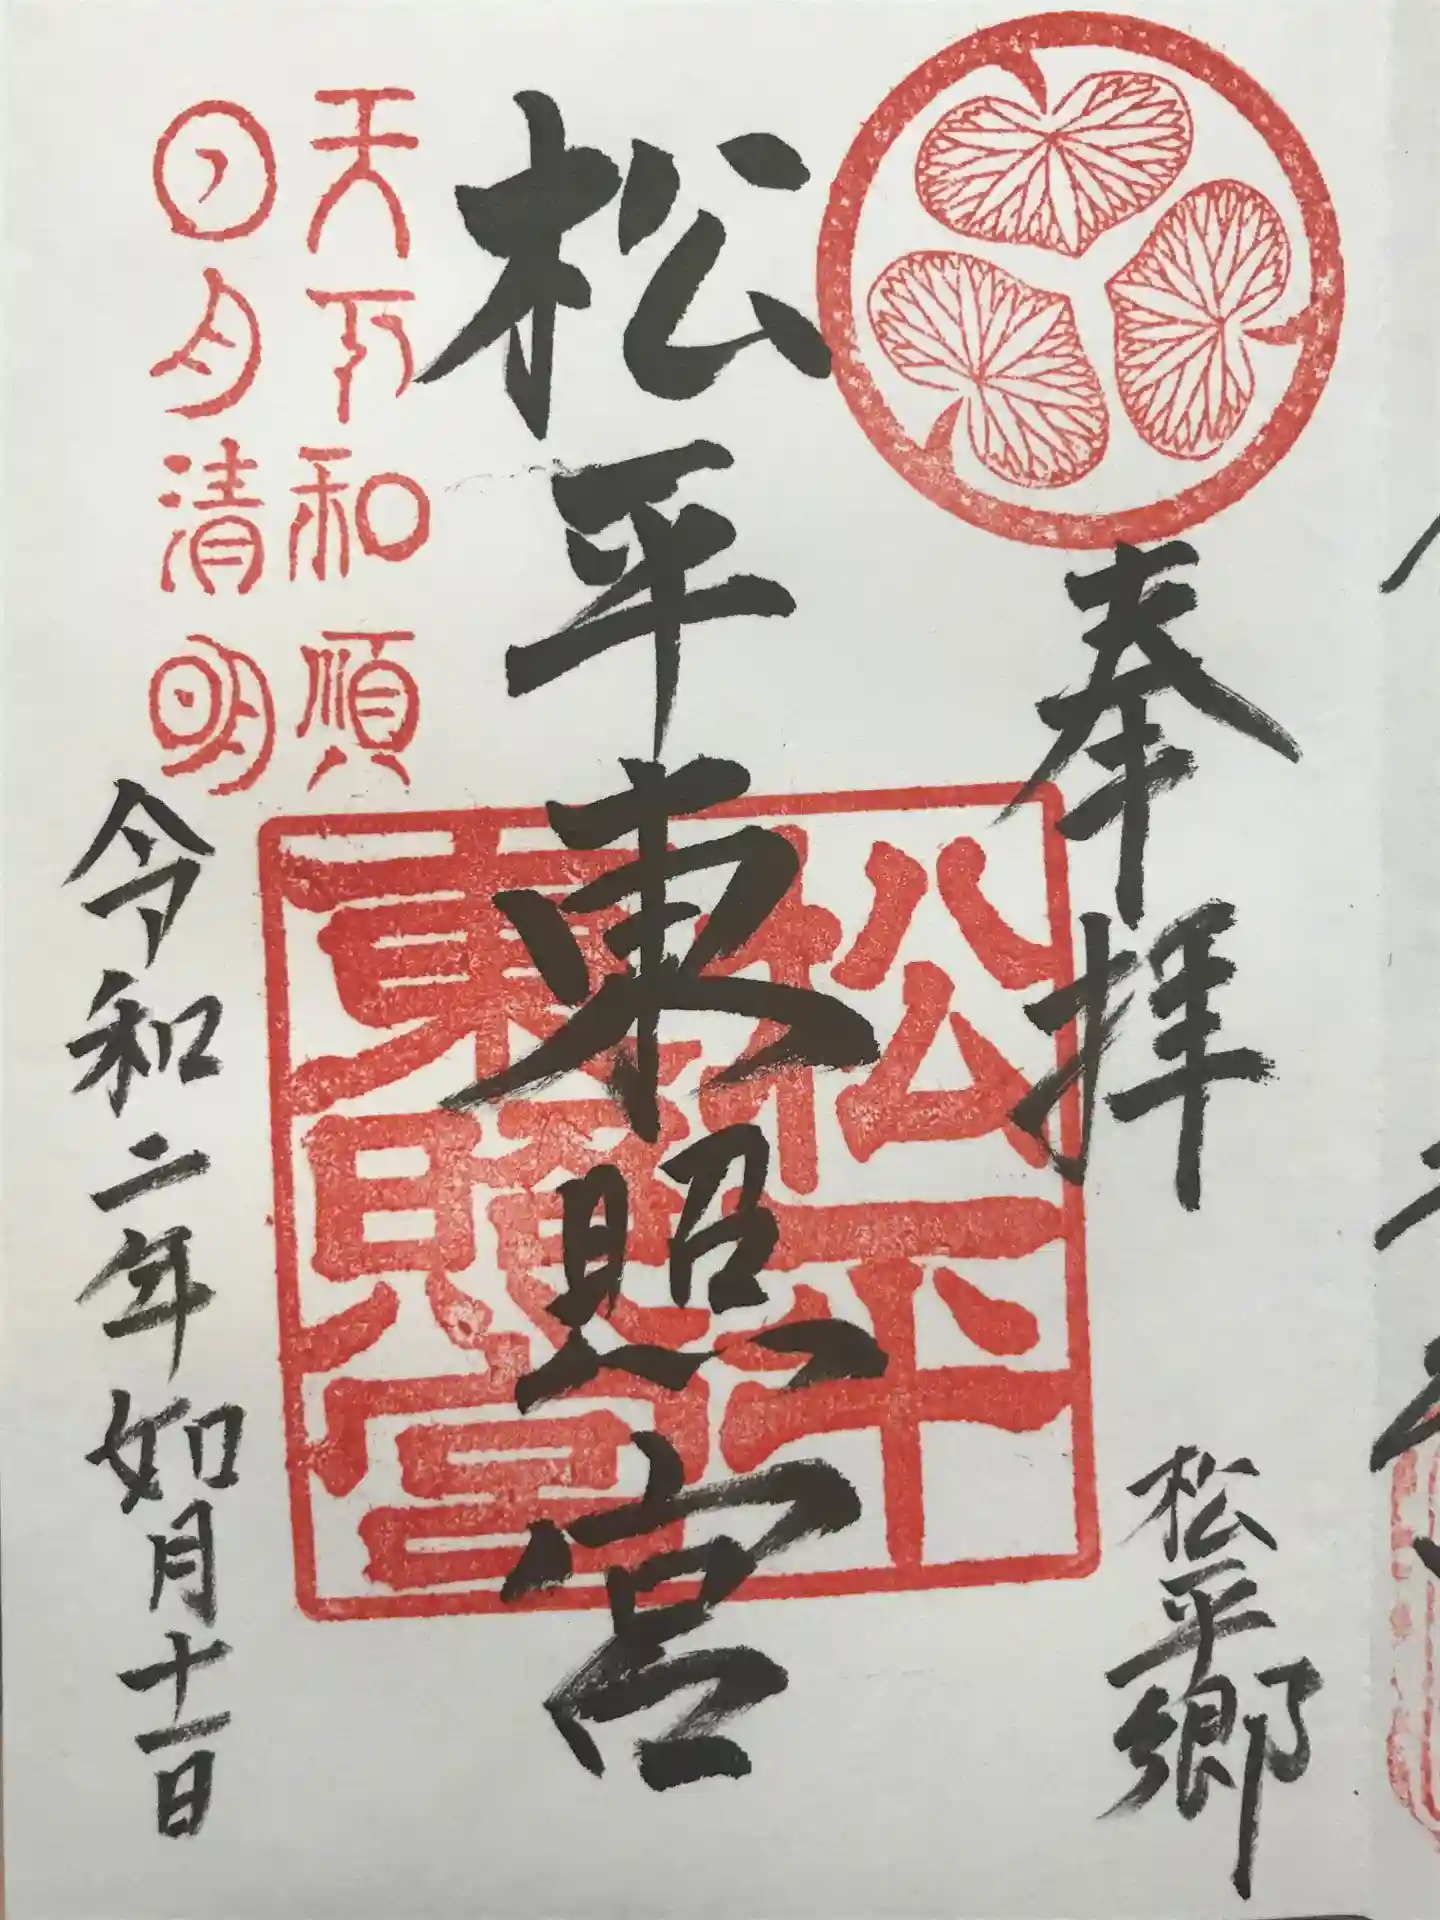 奉拝
松平郷
松平東照宮
松平
東照宮
天下和順
日月清明
令和二年如月十一日